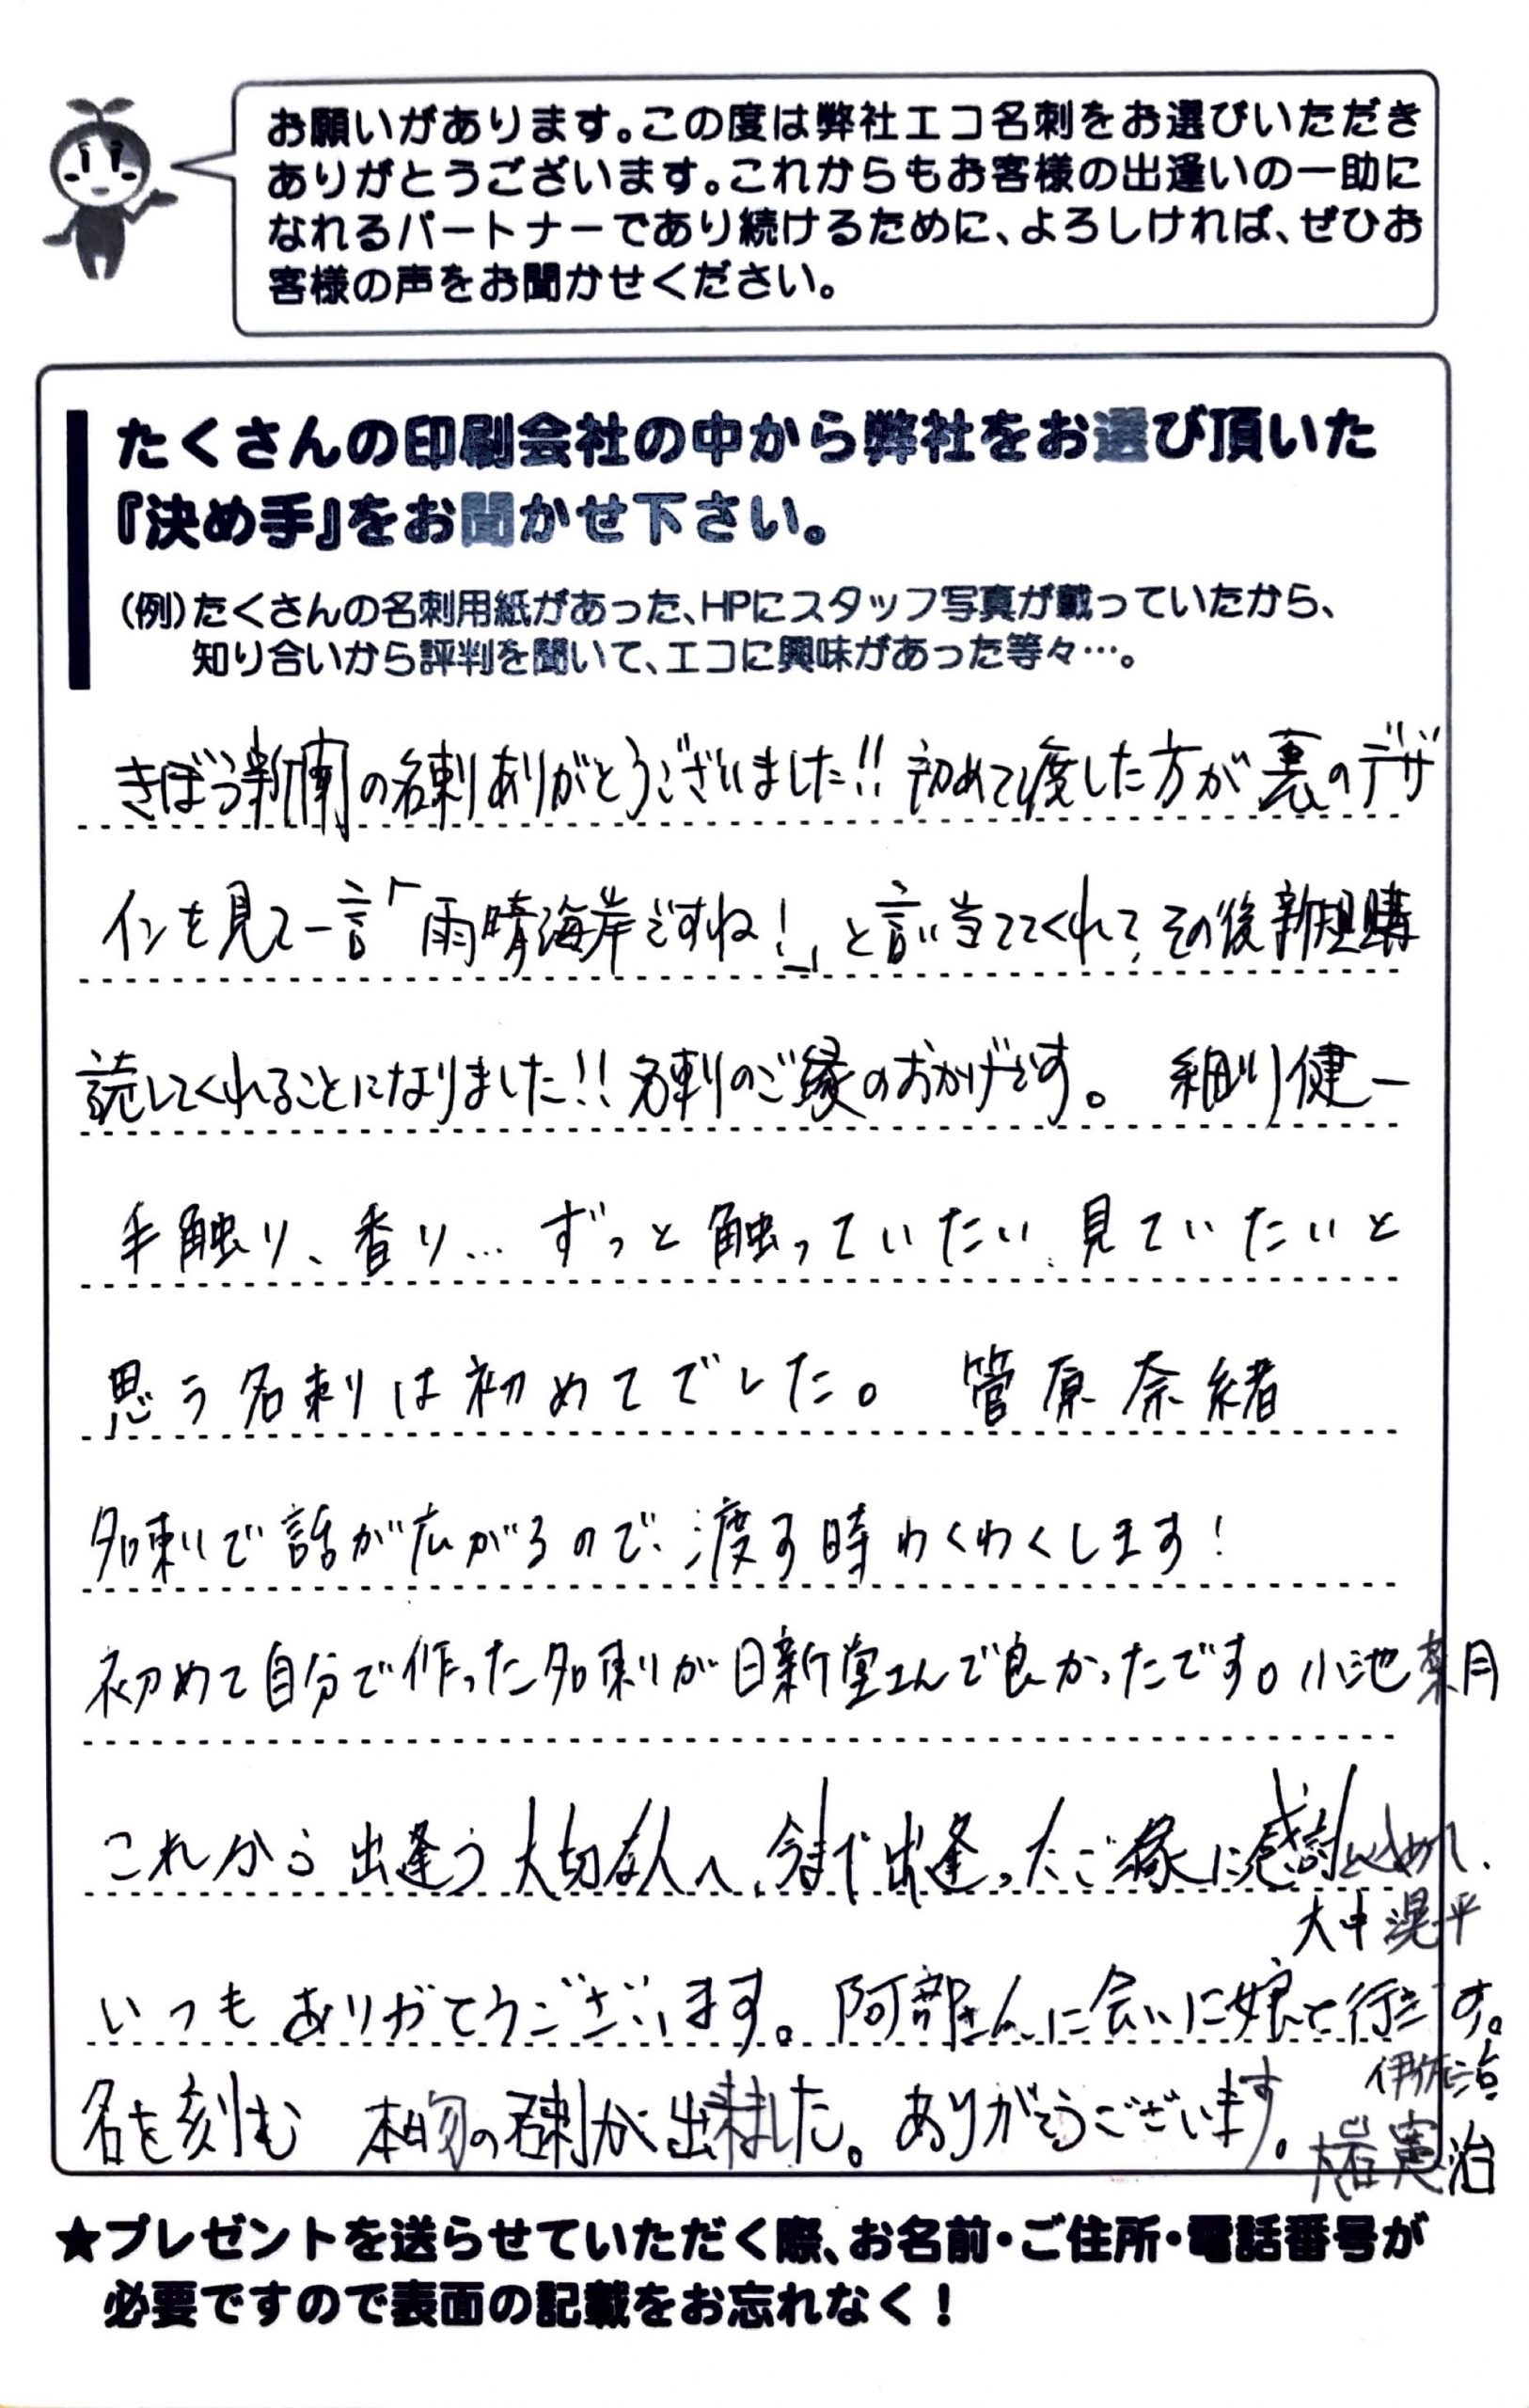 お願いがあります。この度は弊社エコ名刺をお選びいただき
ありがとうございます。これからもお客様の出逢いの一助に
なれるパートナーであり続けるために、よろしければ、ぜひお
客様の声をお聞かせください。
たくさんの印刷会社の中から弊社をお選び頂いた
『決め手』をお聞かせ下さい。
(例)たくさんの名刺用紙があった、HPにスタッフ写真が載っていたから、
知り合いから評判を聞いて、エコに興味があった等々…。
きぼう新聞の名刺ありがとうございました!! 初めて渡した方が裏のデザ
インを見て一言「雨晴海岸ですね!」と言い当ててくれて、その後新規購
読してくれることになりました!! 名刺のご縁のおかげです。 細川健一
手触り、香り… ずっと触っていたい、見ていたいと
思う名刺は初めてでした。 菅原奈緒
名刺で話が広がるので、渡す時わくわくします!
初めて自分で作った名刺が日新堂さんで良かったです。小池菜月
これから出逢う大切な人へ、今まで出逢ったご縁に感謝を込めて、
大中滉平
いつもありがとうございます。阿部さんに会いに娘と行きます。
伊佐治
名を刻む 本物の名刺が出来ました。ありがとうございます。
大岩憲治
★プレゼントを送らせていただく際、お名前・ご住所・電話番号が
必要ですので表面の記載をお忘れなく!